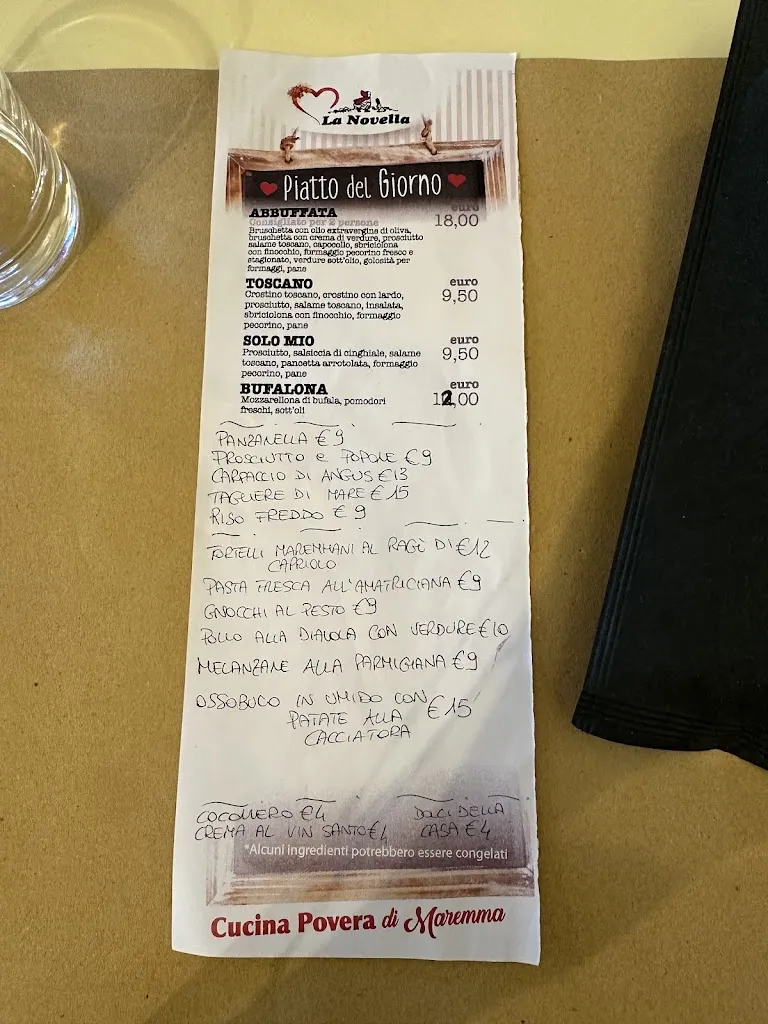 La Novella
Piatto del Giorno
ABBUFFATA euro
Consigliato per 2 persone 18,00
Bruschetta con olio extravergine di oliva,
bruschetta con crema di verdure, prosciutto
salame toscano, capocollo, sbriciolona
con finocchio, formaggio pecorino fresco e
stagionato, verdure sott'olio, golosità per
formaggi, pane
TOSCANO euro
Crostino toscano, crostino con lardo, 9,50
prosciutto, salame toscano, insalata,
sbriciolona con finocchio, formaggio
pecorino, pane
SOLO MIO euro
Prosciutto, salsiccia di cinghiale, salame 9,50
toscano, pancetta arrotolata, formaggio
pecorino, pane
BUFALONA euro
Mozzarellona di bufala, pomodori 12,00
freschi, sott'oli
PANZANELLA €9
PROSCIUTTO e POPONE €9
CARPACCIO DI ANGUS €13
TAGLIERE DI MARE €15
RISO FREDDO €9
TORTELLI MAREMMANI AL RAGÙ DI €12
CAPRIOLO
PASTA FRESCA ALL'AMATRICIANA €9
GNOCCHI AL PESTO €9
POLLO ALLA DIAVOLA CON VERDURE €10
MELANZANE ALLA PARMIGIANA €9
OSSOBUCO IN UMIDO CON €15
PATATE ALLA
CACCIATORA
COCOMERO €4 DOLCI DELLA
CREMA AL VIN SANTO €4 CASA €4
*Alcuni ingredienti potrebbero essere congelati
Cucina Povera di Maremma